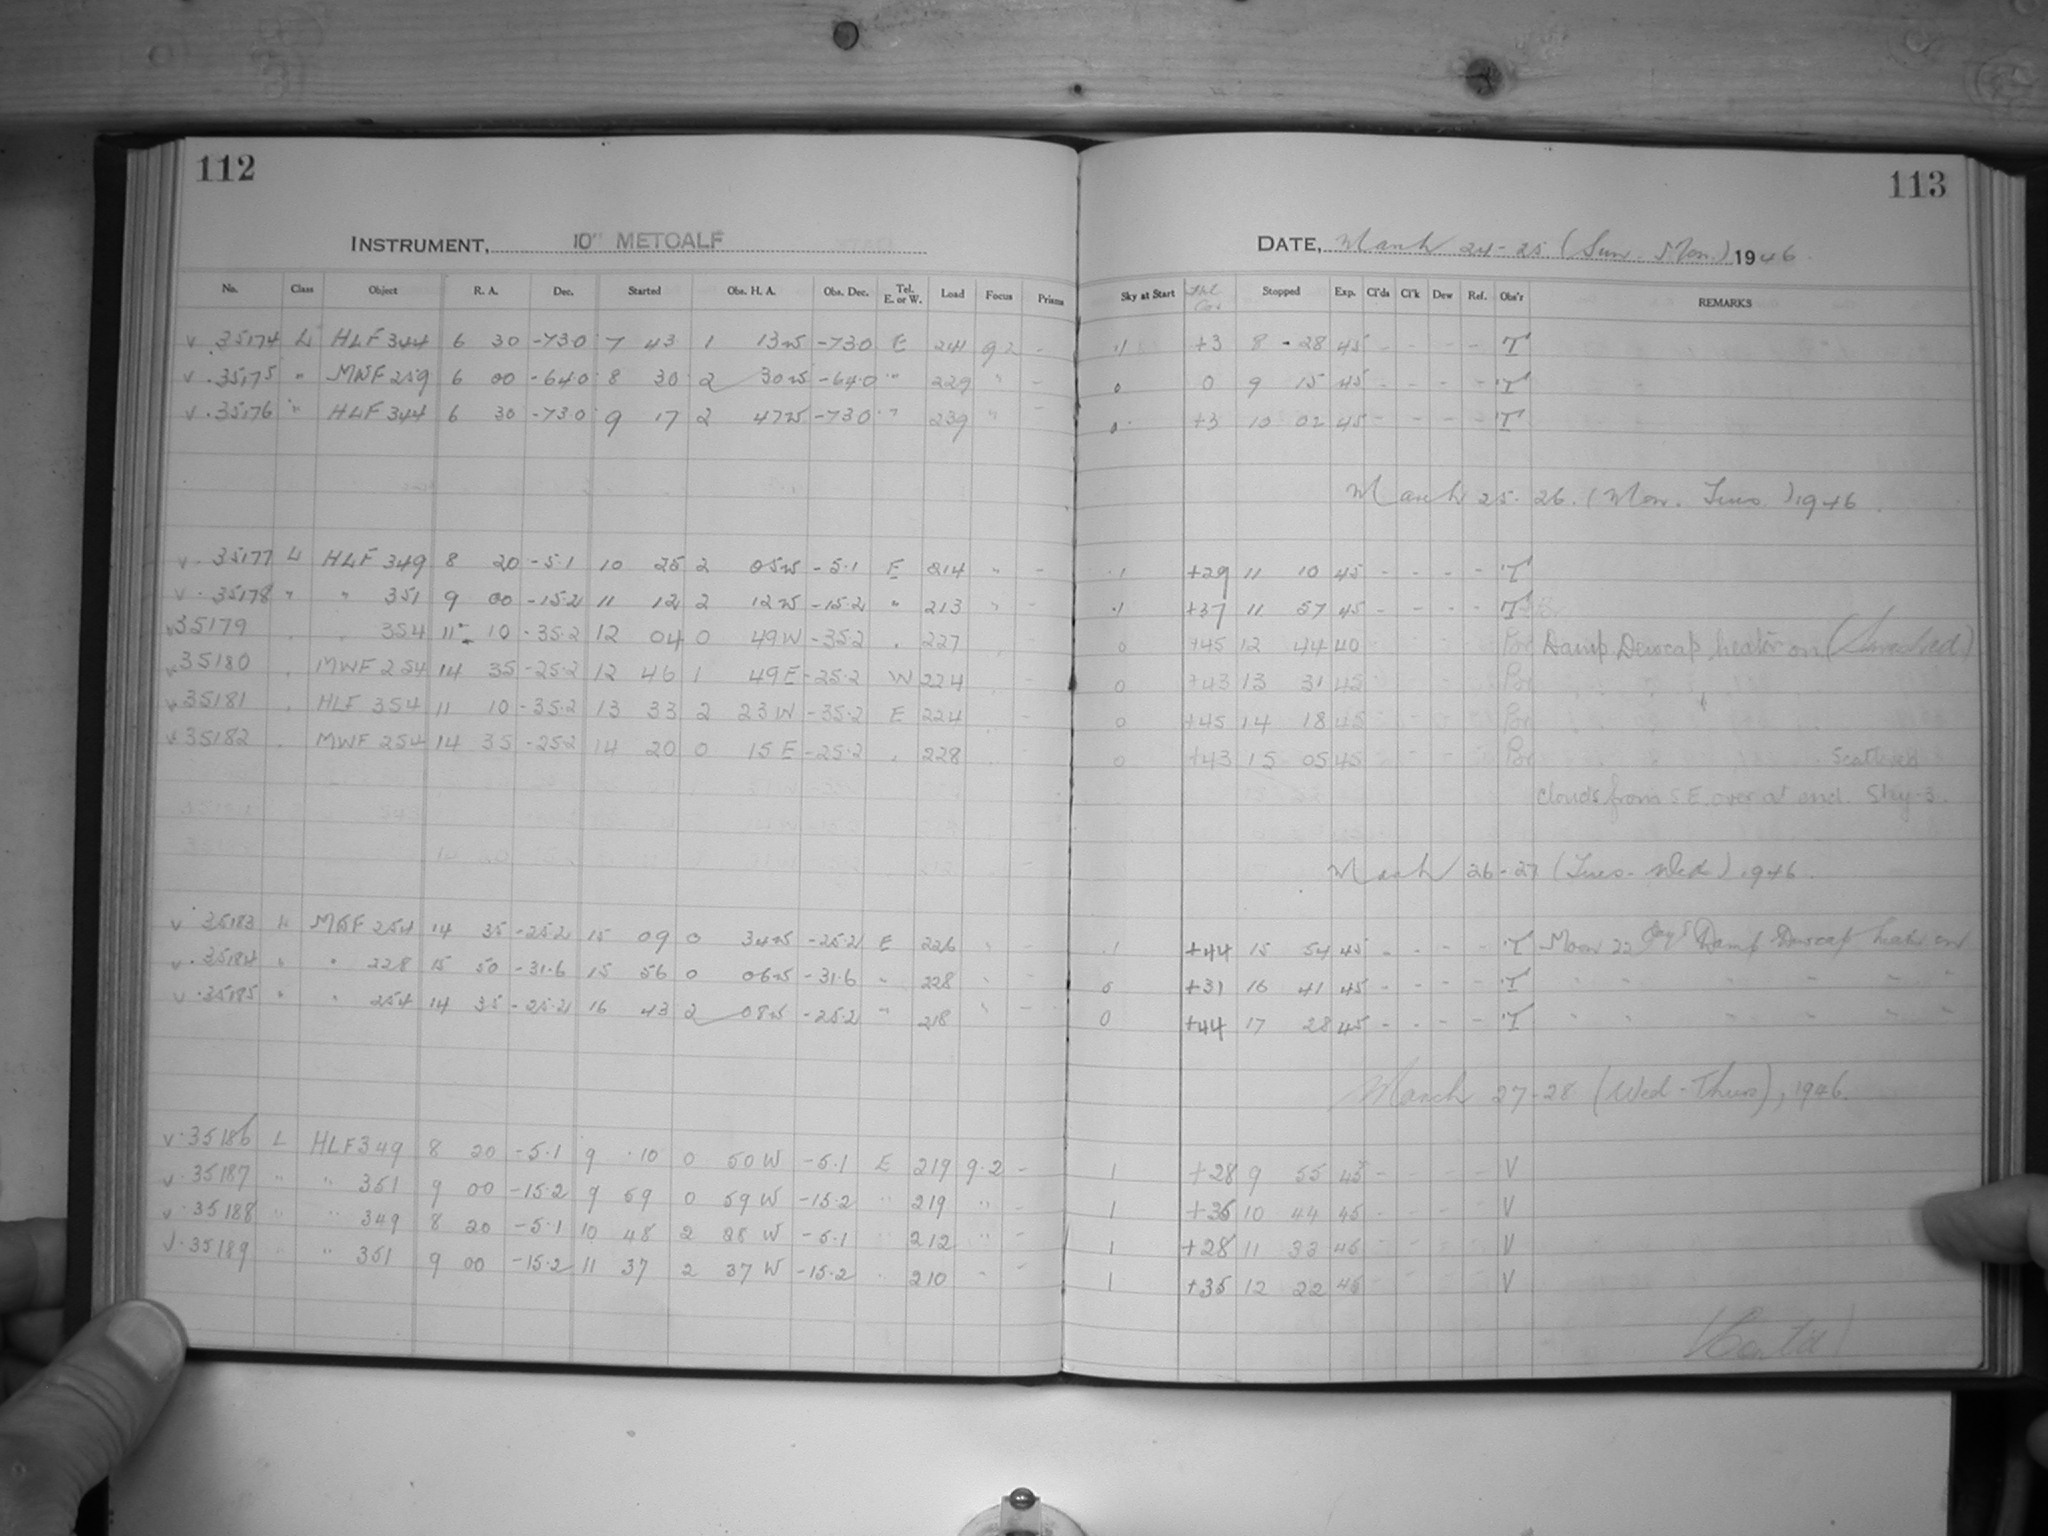 112
113
INSTRUMENT, 10" METCALF
DATE, March 24-25 (Sun. Mon.) 1946
No. Class Object R. A. Dec. Started Obs. H. A. Obs. Dec. Tel. E. or W. Load Focus Prisms Sky at Start Stopped Exp. Cl'ds Cl'k Dew Ref. Obs'r REMARKS
v .35174 L HLF 344 6 30 -73.0 7 43 1 13W -73.0 E 241 9.2 - .1 +3 8 28 45 - - - - T
v .35175 " MWF 259 6 00 -64.0 8 30 2 30W -64.0 " 229 " - 0 0 9 15 45 - - - - T
v .35176 " HLF 344 6 30 -73.0 9 17 2 47W -73.0 " 239 " - 0 +3 10 02 45 - - - - T
March 25-26. (Mon. Tues.) 1946.
v .35177 L HLF 349 8 20 -5.1 10 25 2 05W -5.1 E 214 " - .1 +29 11 10 45 - - - - T
v .35178 " " 351 9 00 -15.2 11 12 2 12W -15.2 " 213 " - .1 +37 11 57 45 - - - - T
v 35179 " " 354 11 10 -35.2 12 04 0 49W -35.2 " 227 0 +45 12 44 40 Damp Dewcap heater on
v 35180 " MWF 254 14 35 -25.2 12 46 1 49E -25.2 W 224 0 +43 13 31 45
v 35181 " HLF 354 11 10 -35.2 13 33 2 23W -35.2 E 224 0 +45 14 18 45
v 35182 " MWF 254 14 35 -25.2 14 20 0 15E -25.2 " 228 0 +43 15 05 45 Scattered
clouds from S.E. over at end. Sky-3.
March 26-27 (Tues-Wed) 1946.
v .35183 L MWF 254 14 35 -25.2 15 09 0 34W -25.2 E 226 " - .1 +44 15 54 45 - - - - T Moon 22 Days Damp Dewcap heater on
v .35184 " " 228 15 50 -31.6 15 56 0 06W -31.6 " 228 " - 0 +31 16 41 45 - - - - T " " " " " "
v .35185 " " 254 14 35 -25.2 16 43 2 08W -25.2 " 218 " - 0 +44 17 28 45 - - - - T " " " " " "
March 27-28 (Wed-Thurs), 1946.
v .35186 L HLF 349 8 20 -5.1 9 10 0 50W -5.1 E 219 9.2 - 1 +28 9 55 45 - - - - V
v .35187 " " 351 9 00 -15.2 9 59 0 59W -15.2 " 219 " - 1 +35 10 44 45 - - - - V
v .35188 " " 349 8 20 -5.1 10 48 2 28W -5.1 " 212 " - 1 +28 11 33 45 - - - - V
v .35189 " " 351 9 00 -15.2 11 37 2 37W -15.2 " 210 " - 1 +35 12 22 45 - - - - V
(Cont'd)